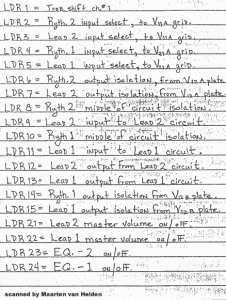 LDR 1 = Trem shift ch#1
LDR 2 = Ryth 2 input select, to V11A grid.
LDR 3 = Lead 2 input select, to V11A grid.
LDR 4 = Ryth 1 input select, to V11A grid.
LDR 5 = Lead 1 input select, to V11A grid.
LDR 6 = Ryth. 2 output isolation, from V12A plate.
LDR 7 = Lead 2 output isolation, from V12A plate.
LDR 8 = Ryth 2 middle of circuit isolation.
LDR 9 = Lead 2 input to Lead 2 circuit.
LDR 10 = Ryth 1 middle of circuit isolation.
LDR 11 = Lead 1 input to Lead 1 circuit.
LDR 12 = Lead 2 output from Lead 2 circuit.
LDR 13 = Lead 1 output from Lead 1 circuit.
LDR 14 = Ryth 1 output isolation from plate.
LDR 15 = Lead 1 output isolation from plate.
LDR 21 = Lead 2 master volume on/off.
LDR 22 = Lead 1 master volume on/off.
LDR 23 = E.Q. - 2 on/off.
LDR 24 = E.Q. - 1 on/off.
scanned by Maarten van Helden